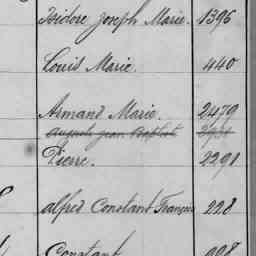 Isidore Joseph Marie. 1396
Louis Marie. 440
Armand Marie. 2479
Auguste Jean Baptiste
Pierre. 2291
Alfred Constant François 228
Constant